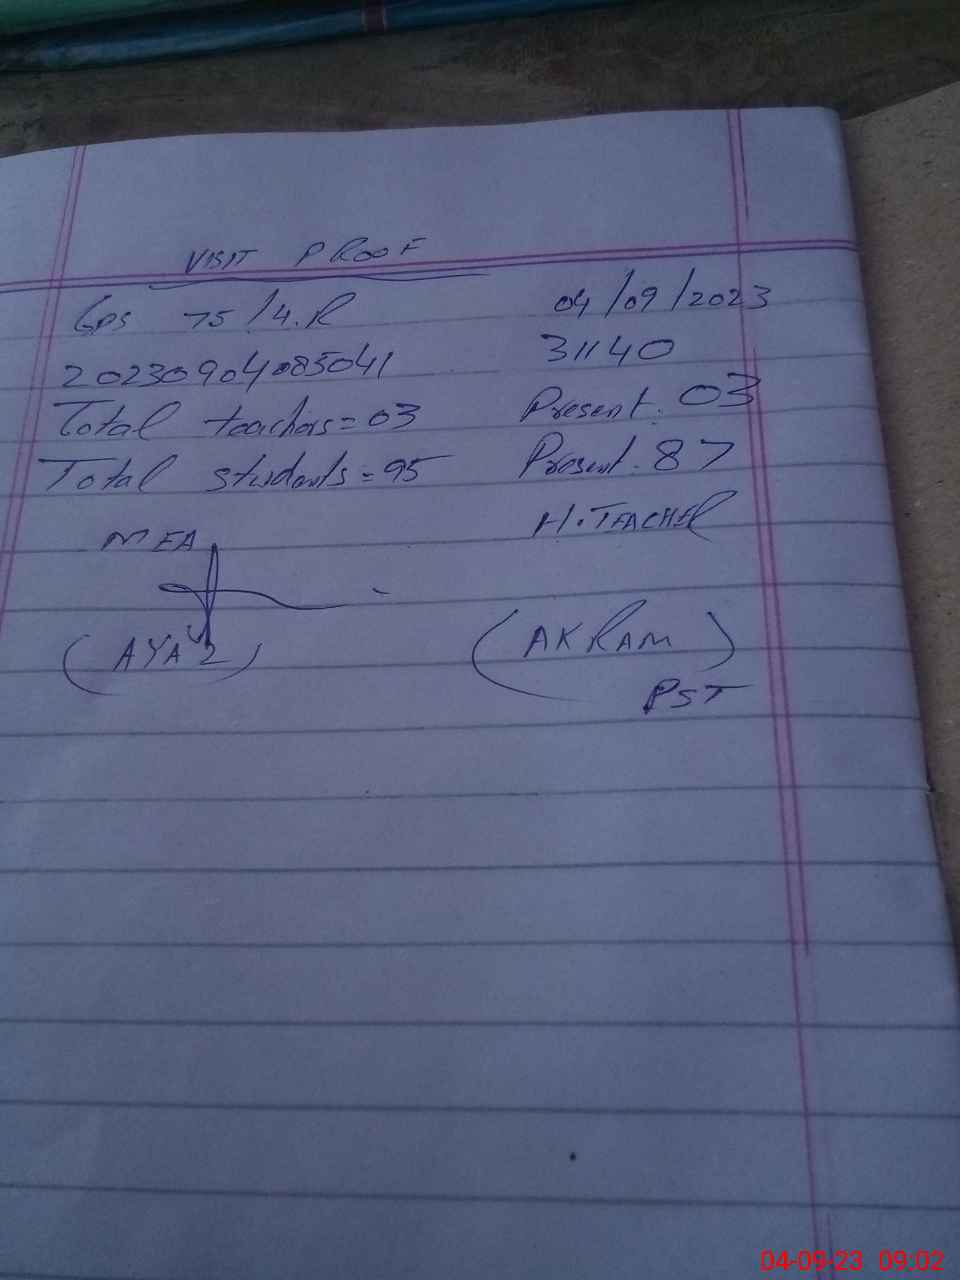 VISIT PROOF
Gps 75/4.R 04/09/2023
20230904085041 31140
Total teachers = 03 Present. 03
Total students = 95 Present. 87
MEA H.TEACHER
(AYAZ) (AKRAM)
PST
04-09-23 09:02